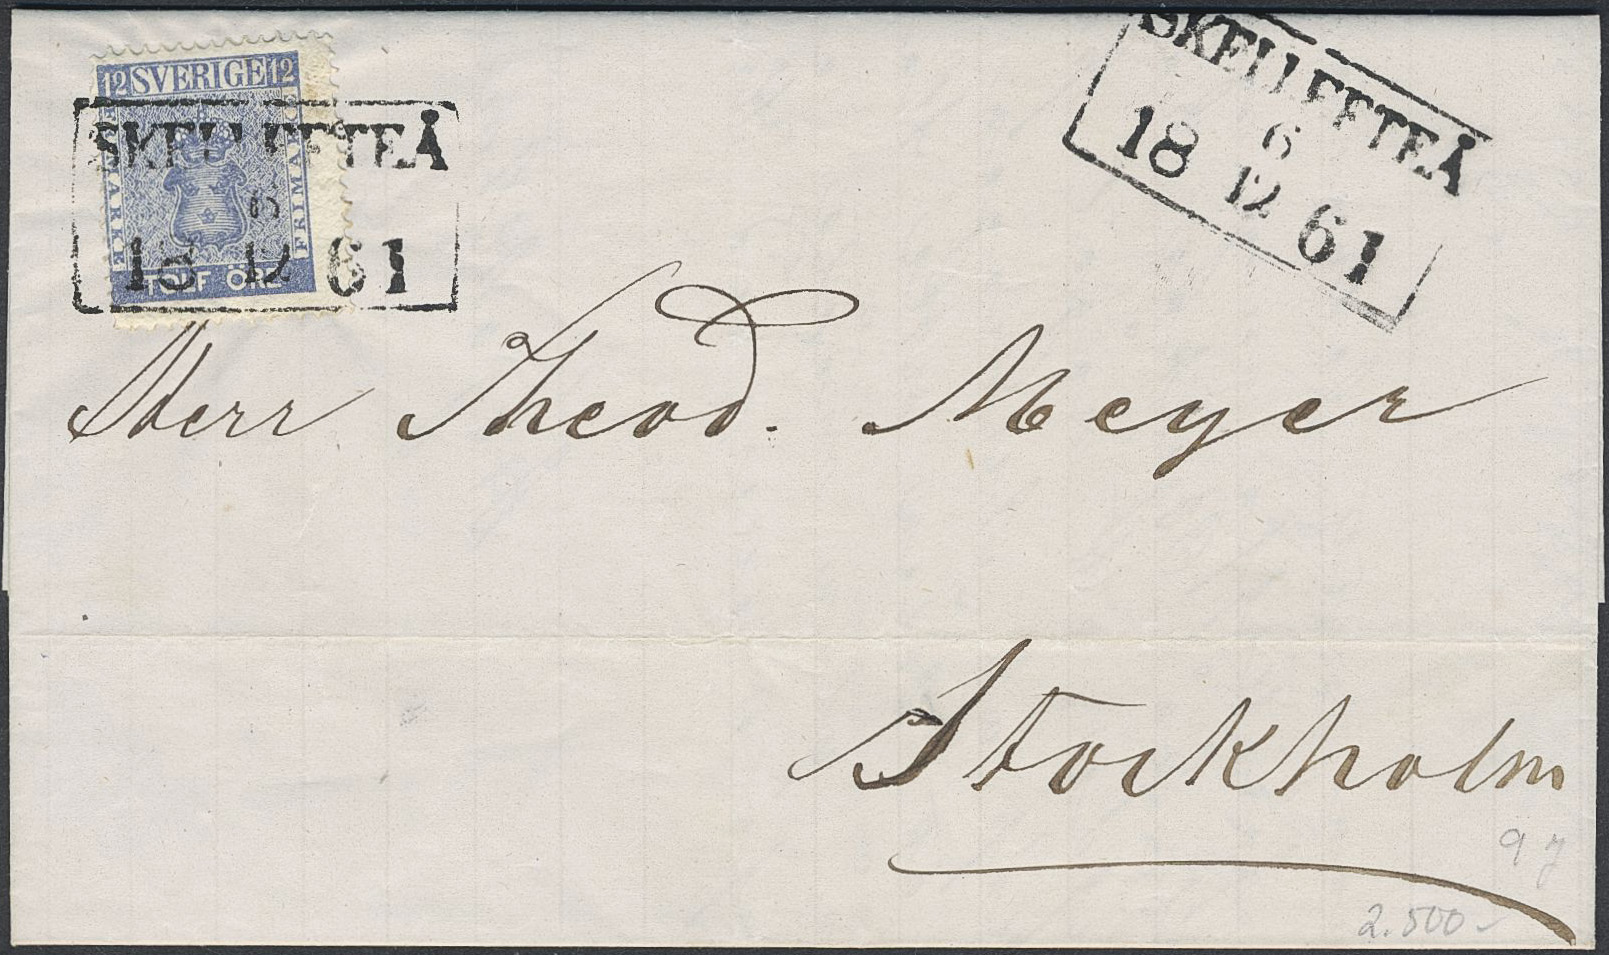 12 SVERIGE 12
FRIMARKE
FRIMARKE
TOLF ÖRE
SKELLEFTEÅ
6
18 12 61
SKELLEFTEÅ
6
18 12 61
Herr Theod. Meyer
Stockholm
2.500-